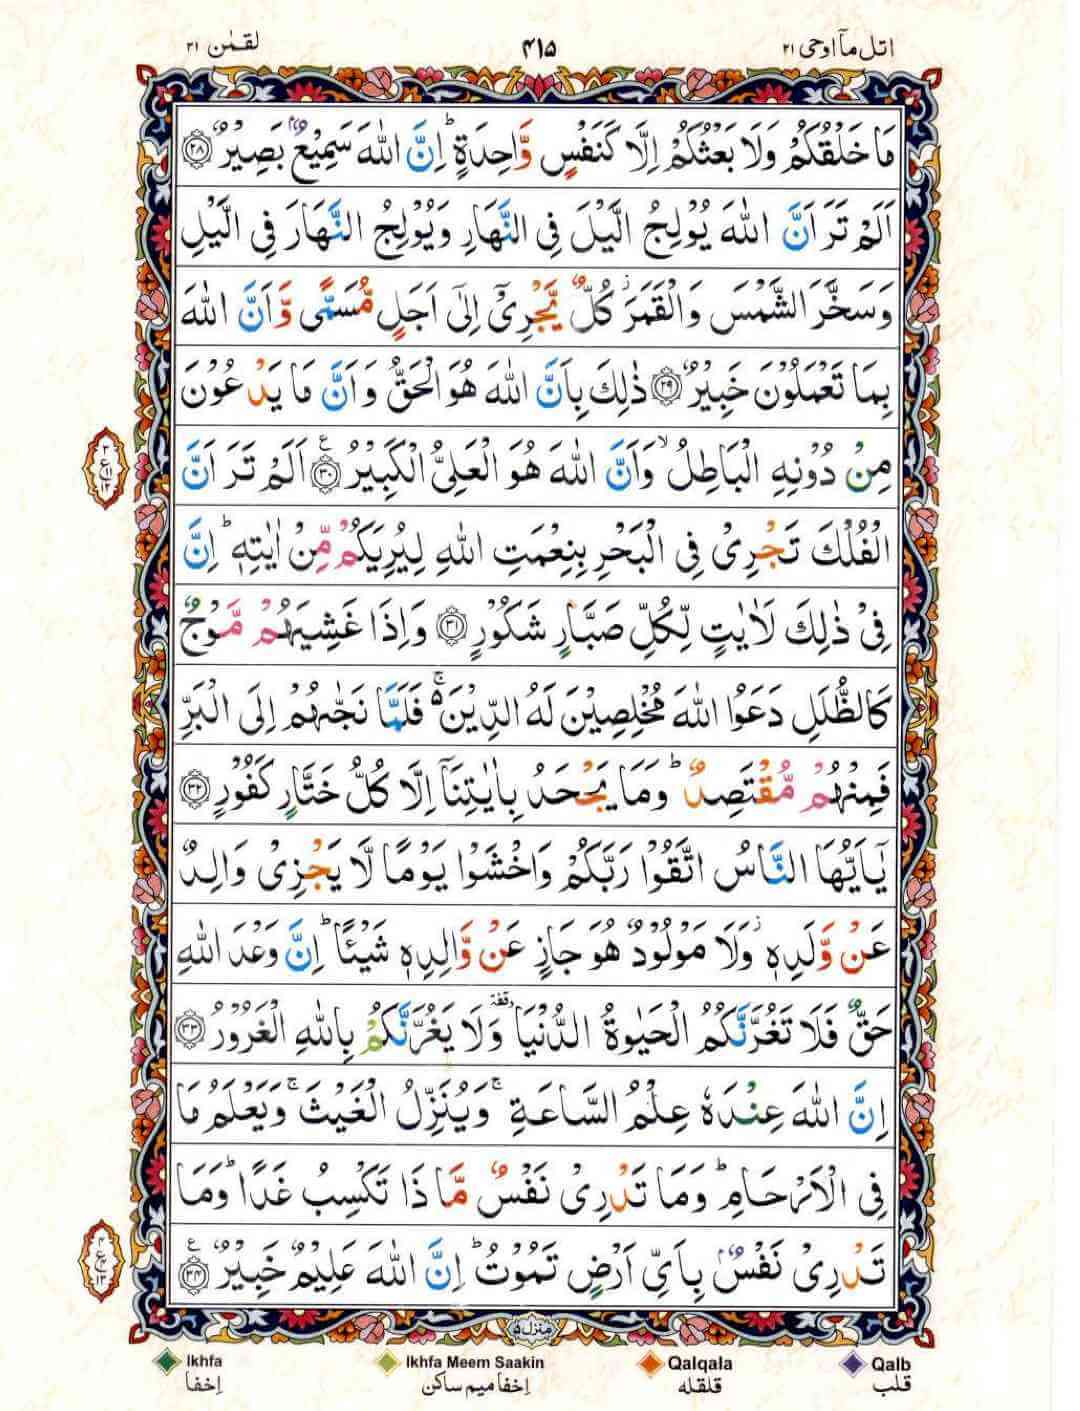 اتل مآ اوحی ۲۱
۴۱۵
لقمٰن ۳۱
مَا خَلْقُكُمْ وَلَا بَعْثُكُمْ اِلَّا كَنَفْسٍ وَّاحِدَةٍ ؕ اِنَّ اللّٰهَ سَمِيْعٌۢ بَصِيْرٌ ﴿۲۸﴾
اَلَمْ تَرَ اَنَّ اللّٰهَ يُوْلِجُ الَّيْلَ فِى النَّهَارِ وَيُوْلِجُ النَّهَارَ فِى الَّيْلِ
وَسَخَّرَ الشَّمْسَ وَالْقَمَرَ ؗ كُلٌّ يَّجْرِىْۤ اِلٰٓى اَجَلٍ مُّسَمًّى وَّاَنَّ اللّٰهَ
بِمَا تَعْمَلُوْنَ خَبِيْرٌ ﴿۲۹﴾ ذٰلِكَ بِاَنَّ اللّٰهَ هُوَ الْحَقُّ وَاَنَّ مَا يَدْعُوْنَ
مِنْ دُوْنِهِ الْبَاطِلُ ۙ وَاَنَّ اللّٰهَ هُوَ الْعَلِىُّ الْكَبِيْرُ ﴿۳۰﴾ ع اَلَمْ تَرَ اَنَّ
الْفُلْكَ تَجْرِىْ فِى الْبَحْرِ بِنِعْمَتِ اللّٰهِ لِيُرِيَكُمْ مِّنْ اٰيٰتِهٖ ؕ اِنَّ
فِىْ ذٰلِكَ لَاٰيٰتٍ لِّكُلِّ صَبَّارٍ شَكُوْرٍ ﴿۳۱﴾ وَاِذَا غَشِيَهُمْ مَّوْجٌ
كَالظُّلَلِ دَعَوُا اللّٰهَ مُخْلِصِيْنَ لَهُ الدِّيْنَ ۚ۬ فَلَمَّا نَجّٰٮهُمْ اِلَى الْبَرِّ
فَمِنْهُمْ مُّقْتَصِدٌ ؕ وَمَا يَجْحَدُ بِاٰيٰتِنَاۤ اِلَّا كُلُّ خَتَّارٍ كَفُوْرٍ ﴿۳۲﴾
يٰۤاَيُّهَا النَّاسُ اتَّقُوْا رَبَّكُمْ وَاخْشَوْا يَوْمًا لَّا يَجْزِىْ وَالِدٌ
عَنْ وَّلَدِهٖ ؗ وَلَا مَوْلُوْدٌ هُوَ جَازٍ عَنْ وَّالِدِهٖ شَيْـًٔا ؕ اِنَّ وَعْدَ اللّٰهِ
حَقٌّ فَلَا تَغُرَّنَّكُمُ الْحَيٰوةُ الدُّنْيَا وقفة وَلَا يَغُرَّنَّكُمْ بِاللّٰهِ الْغَرُوْرُ ﴿۳۳﴾
اِنَّ اللّٰهَ عِنْدَهٗ عِلْمُ السَّاعَةِ ۚ وَيُنَزِّلُ الْغَيْثَ ۚ وَيَعْلَمُ مَا
فِى الْاَرْحَامِ ؕ وَمَا تَدْرِىْ نَفْسٌ مَّا ذَا تَكْسِبُ غَدًا ؕ وَمَا
تَدْرِىْ نَفْسٌۢ بِاَىِّ اَرْضٍ تَمُوْتُ ؕ اِنَّ اللّٰهَ عَلِيْمٌ خَبِيْرٌ ﴿۳۴﴾ ع
۳ ع ۱۱ ۱۲
۴ ع ۱۳
منزل ۵
Ikhfa Ikhfa Meem Saakin Qalqala Qalb
اِخفا اِخفا میم ساکن قلقله قلب